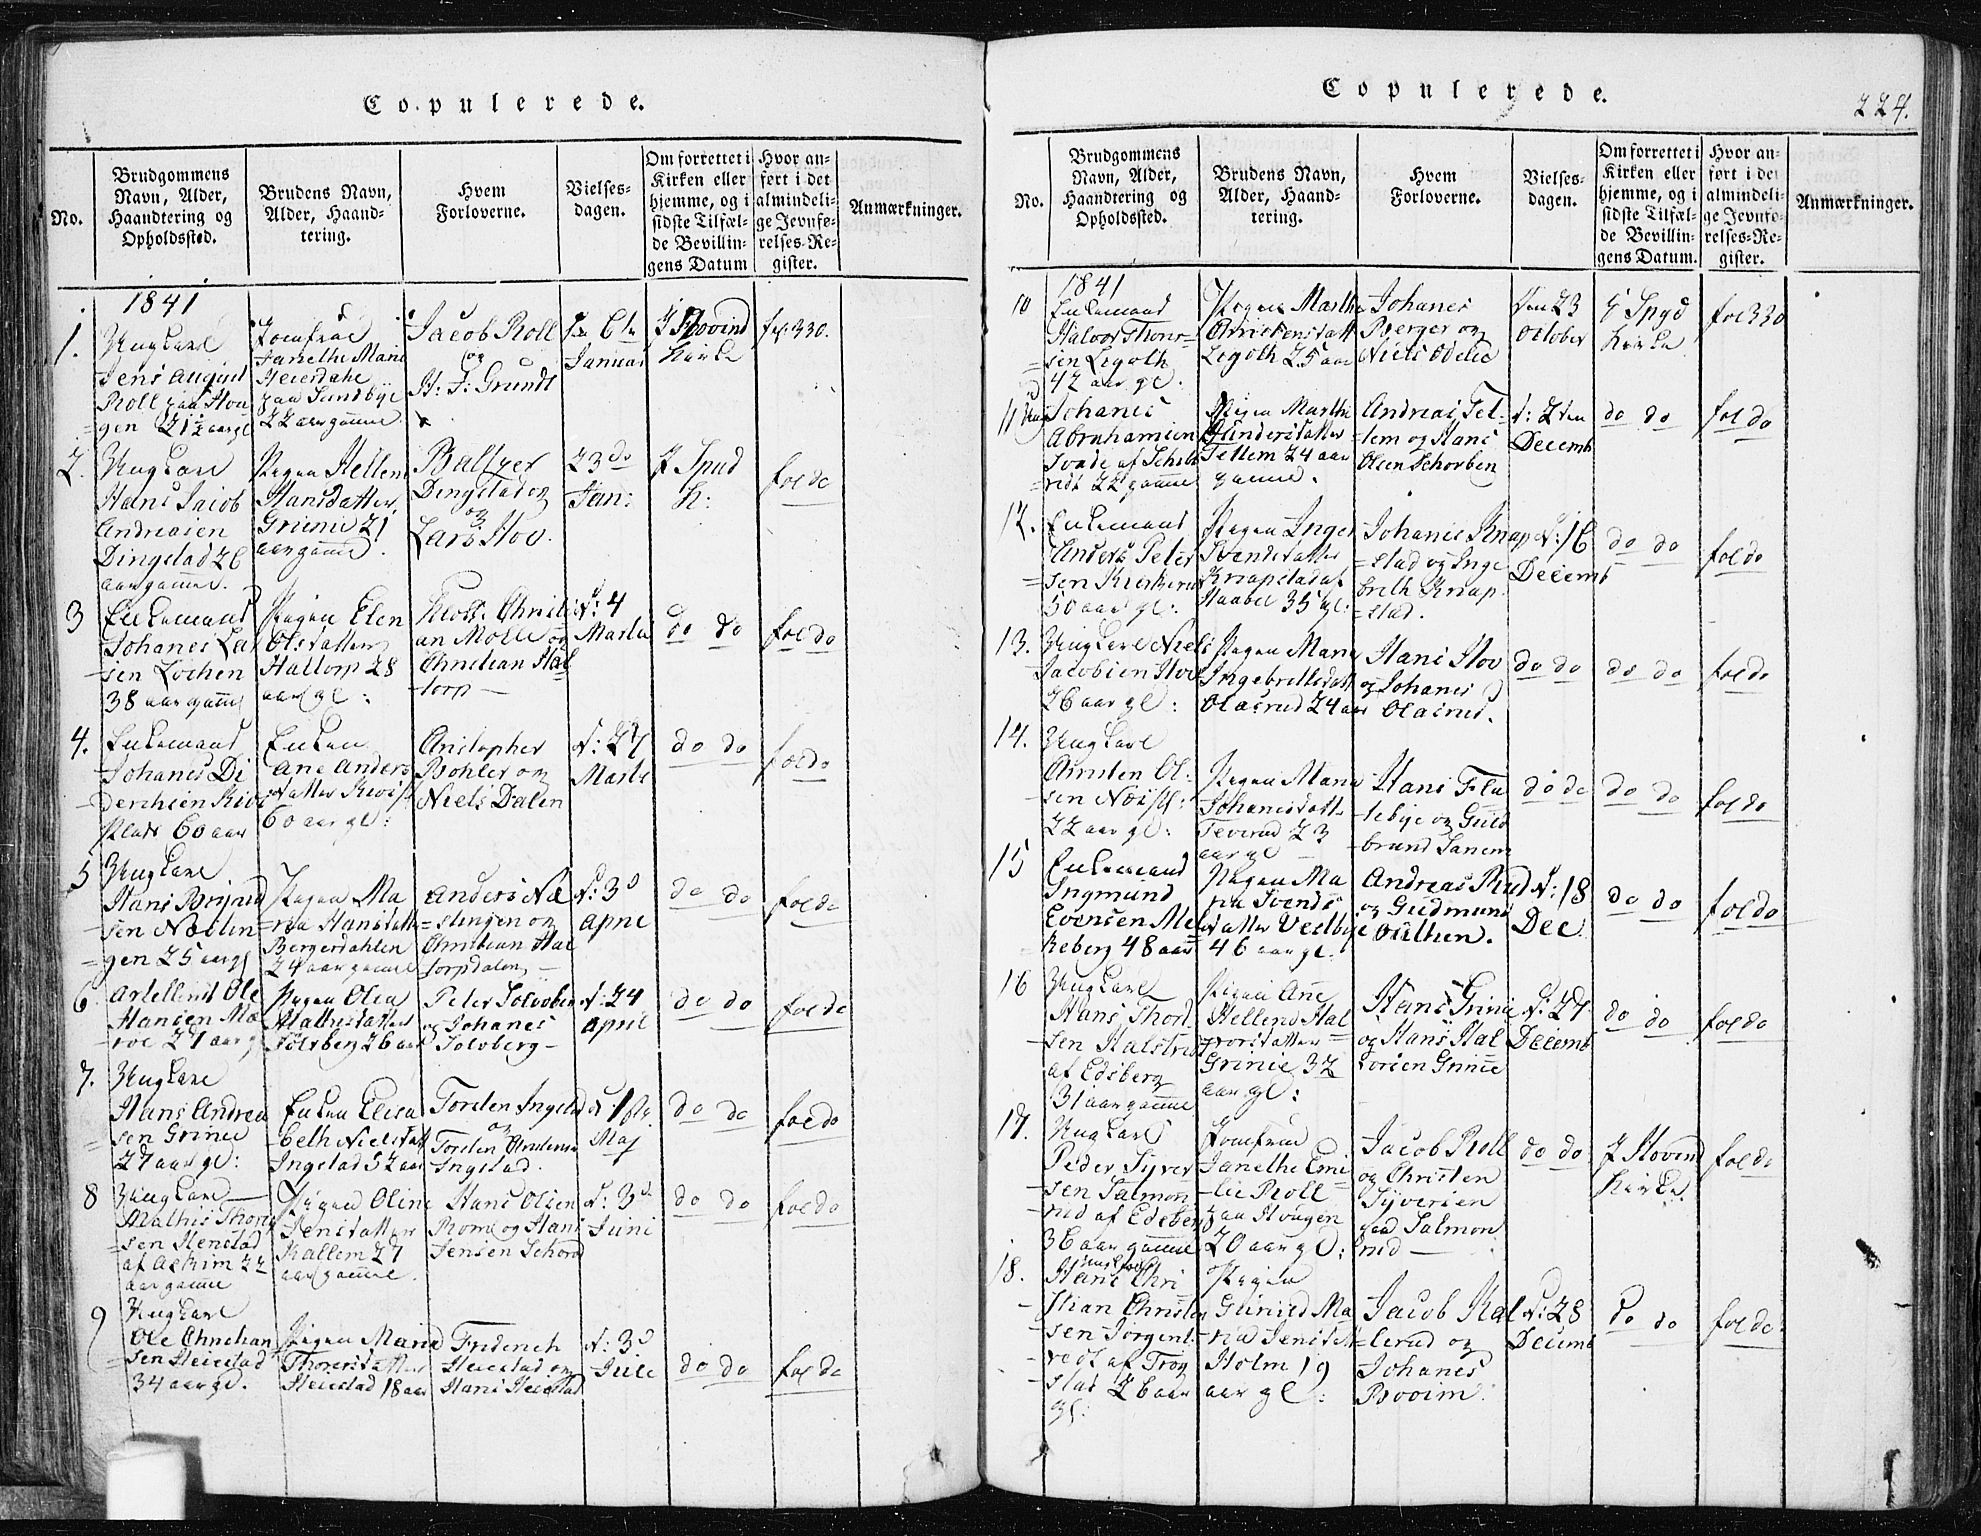 Copulerede.
No.
Brudgommens Navn, Alder, Haandtering og Opholdssted.
Brudens Navn, Alder, Haandtering.
Hvem Forloverne.
Vielsesdagen.
Om forrettet i Kirken eller hjemme, og i sidste Tilfælde Bevillingens Datum
Hvor anført i det almindelige Jevnførelses-Register.
Anmærkninger.
1841
1.
Ungkarl
Jens August
Roll paa Hou
=gen 21½ aar gl
Jomfrue
Janethe Marie
Heierdahl
paa Sundbye
22 aar gamel
Jacob Roll
og
H: J: Grundt
6te
Januar
I Hovind
Kirke
fol 330.
2.
Ungkarl
Hans Jacob
Andreasen
Dingstad 26
aar gamel.
Pigen Hellene
Hansdatter
Grinie 21
aar gamel.
Baltzer
Dingstad og
Lars Hov.
23 do
Jan:
I Spud
K:
fol do
3
Enkemand
Johanes Lar
=sen Lochen
38 aar gamel
Pigen Elen
Olsdatter
Haltorp 28
aar gl:
Christi
an Molle og
Christian Hal
=torp
d: 4
Marts
do do
fol do
4.
Enkemand
Johanes Di
60 aar
Enken
Ane Anders
datter
60 aar gl:
Cristopher
Bohler og
Niels Dalen
d: 27
Marts
do do
fol do
5
Ungkarl
Hans Brynild
=sen Næstin
=gen 25 aar gl
Pigen Ma
=ria Hansdatter
Bergerdahlen
24 aar gamel
Anders Næ
=stingen og
Christian Hal
torpdalen
d: 3d
April
do do
fol do
6.
Ole
Hansen Mæ
27 aar gl
Pigen Olea
Mathisdatter
Solvberg 26 aar
Peter Solvberg
og Johanes
Solvberg
d: 24
April
do do
fol do
7.
Ungkarl
Hans Andrea
=sen Grinie
27 aar gl:
Enken Elisa
=beth Nielsdatt
Ingelstad 52 aar
Torsten Ingelstad
og
Torsten
Ingelstad.
Maj
do do
fol do
8
Ungkarl
Mathis Thore
=sen Henstad
af Askim 22
aar gamel
Pigen Oline
Jensdatter
Kallem 27
aar gamel.
Hans Olsen
Rome og Hans
Jensen
d: 3d
Juni
do do
fol do
9
Ungkarl
Ole Christian
=sen Heiestad
34 aar gl.
Pigen Maria
Thoresdatter
Heiestad 18 aar
Friderich
Heiestad og
Hans Heiestad
d: 3d
Julie
do do
fol do
Copulerede.
224.
No.
Brudgommens Navn, Alder, Haandtering og Opholdssted.
Brudens Navn, Alder, Haandtering.
Hvem Forloverne.
Vielsesdagen.
Om forrettet i Kirken eller hjemme, og i sidste Tilfælde Bevillingens Datum.
Hvor anført i det almindelige Jevnførelses-Register.
Anmærkninger.
1841
10
Enkemand
Halvor Thors=
=sen Ligoth
42 aar gl.
Pigen Marthe
Christensdatt
Ligoth 25 aar
Johanes
Berger og
Niels
Den 23
October
I Spyd
Kirke
fol 330
11
Johanes
Abrahamsen
22 gamel
Pigen Marthe
Gundersdatter
Tellem 24 aar
gamel.
Andreas Tel=
=lem og Hans
Olsen Schorben
d: 2den
Decemb
do do
fol do
12.
Enkemand
Anders Peter
=sen
50 aar gl:
Pigen Inger
Svendsdatter
Knapstad af
Haabøl 35 gl:
Johanes Knap
=stad og Inge
breth Knap
=stad.
d: 16
Decemb
do do
fol do
13.
Ungkarl Niels
Jacobsen Hov
26 aar gl:
Pigen Maria
Ingebrethsdatt
Olasrud 24 aar
Hans Hov
og Johanes
Olasrud.
do do
do do
fol do
14.
Ungkarl
Christen Ol=
=sen
22 aar gl:
Pigen Maria
Johanesdatt
Teverud 23
aar gl
Hans Flu
=tebye og Guld
brand Sanem
do do
do do
fol do
15
Enkemand
Ingmund
Evensen Me
=keberg 48 aar
Pigen Ma
ria Svends
datter Vestbye
46 aar gl.
Andreas Rud
og Gudmund
d: 18
Dec.
do do
fol do
16
Ungkarl
Hans Thord
=sen Halstrud
af Edsberg
31 aar gamel
Pigen Ane
Hellene Hal
=vorsdatter
Grinie 32
aar gl:
Hans Grinie
og Hans Hal
vorsen Grinie
d: 27
Decemb
do do
fol do
17.
Ungkarl
Peder Syver
=sen Salmon
rud af Edsberg
36 aar gamel
Jomfrue
Janethe Emi
=lie Roll
paa Hougen
20 aar gl:
Jacob Roll
og Christen
Syversen
paa Salmon
rud
do do
I Hovind
Kirke.
fol do
18.
Ungkarl
Hans Chri
=stian Christen
=sen Jorgent
vedt af Trøg
=stad 26 aar
gl.
Pigen
Gunild Ma
=ria Jensdatt
Holm 19
aar gl:
Jacob Kal
=lerud og
Johanes
Booim.
d: 28
Decemb
do do
fol do